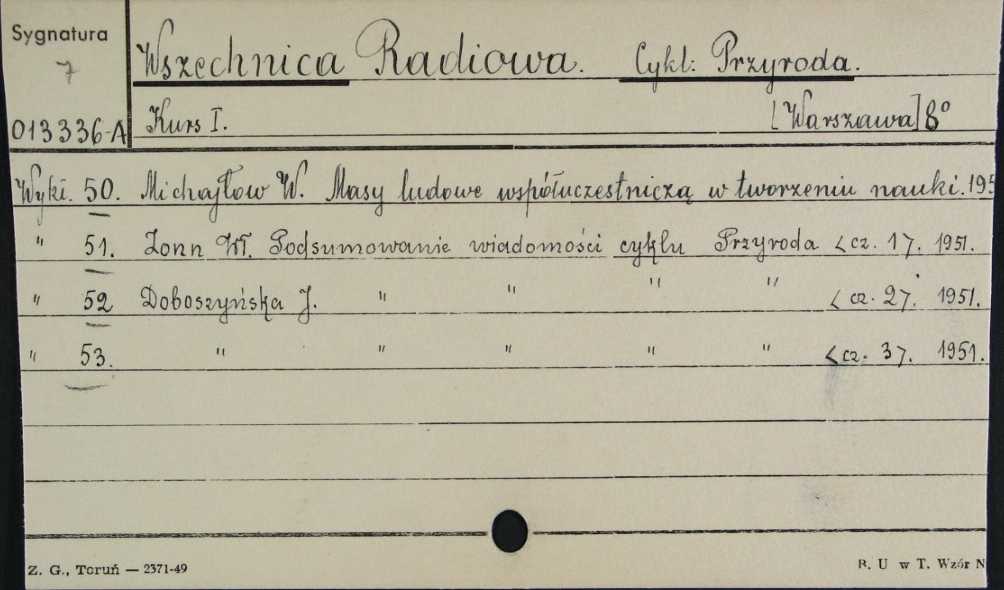 Sygnatura
7
013336-A
Wszechnica Radiowa. Cykl: Przyroda.
Kurs I. [Warszawa] 8°
Wykł. 50. Michajłow W. Masy ludowe współuczestniczą w tworzeniu nauki. 195
" 51. Zonn Wł. Podsumowanie wiadomości cyklu Przyroda <cz. 1>. 1951.
" 52 Doboszyńska J. " " " " <cz. 2>. 1951.
" 53. " " " " " <cz. 3>. 1951.
Z. G., Toruń — 2371-49
B. U w T. Wzór N